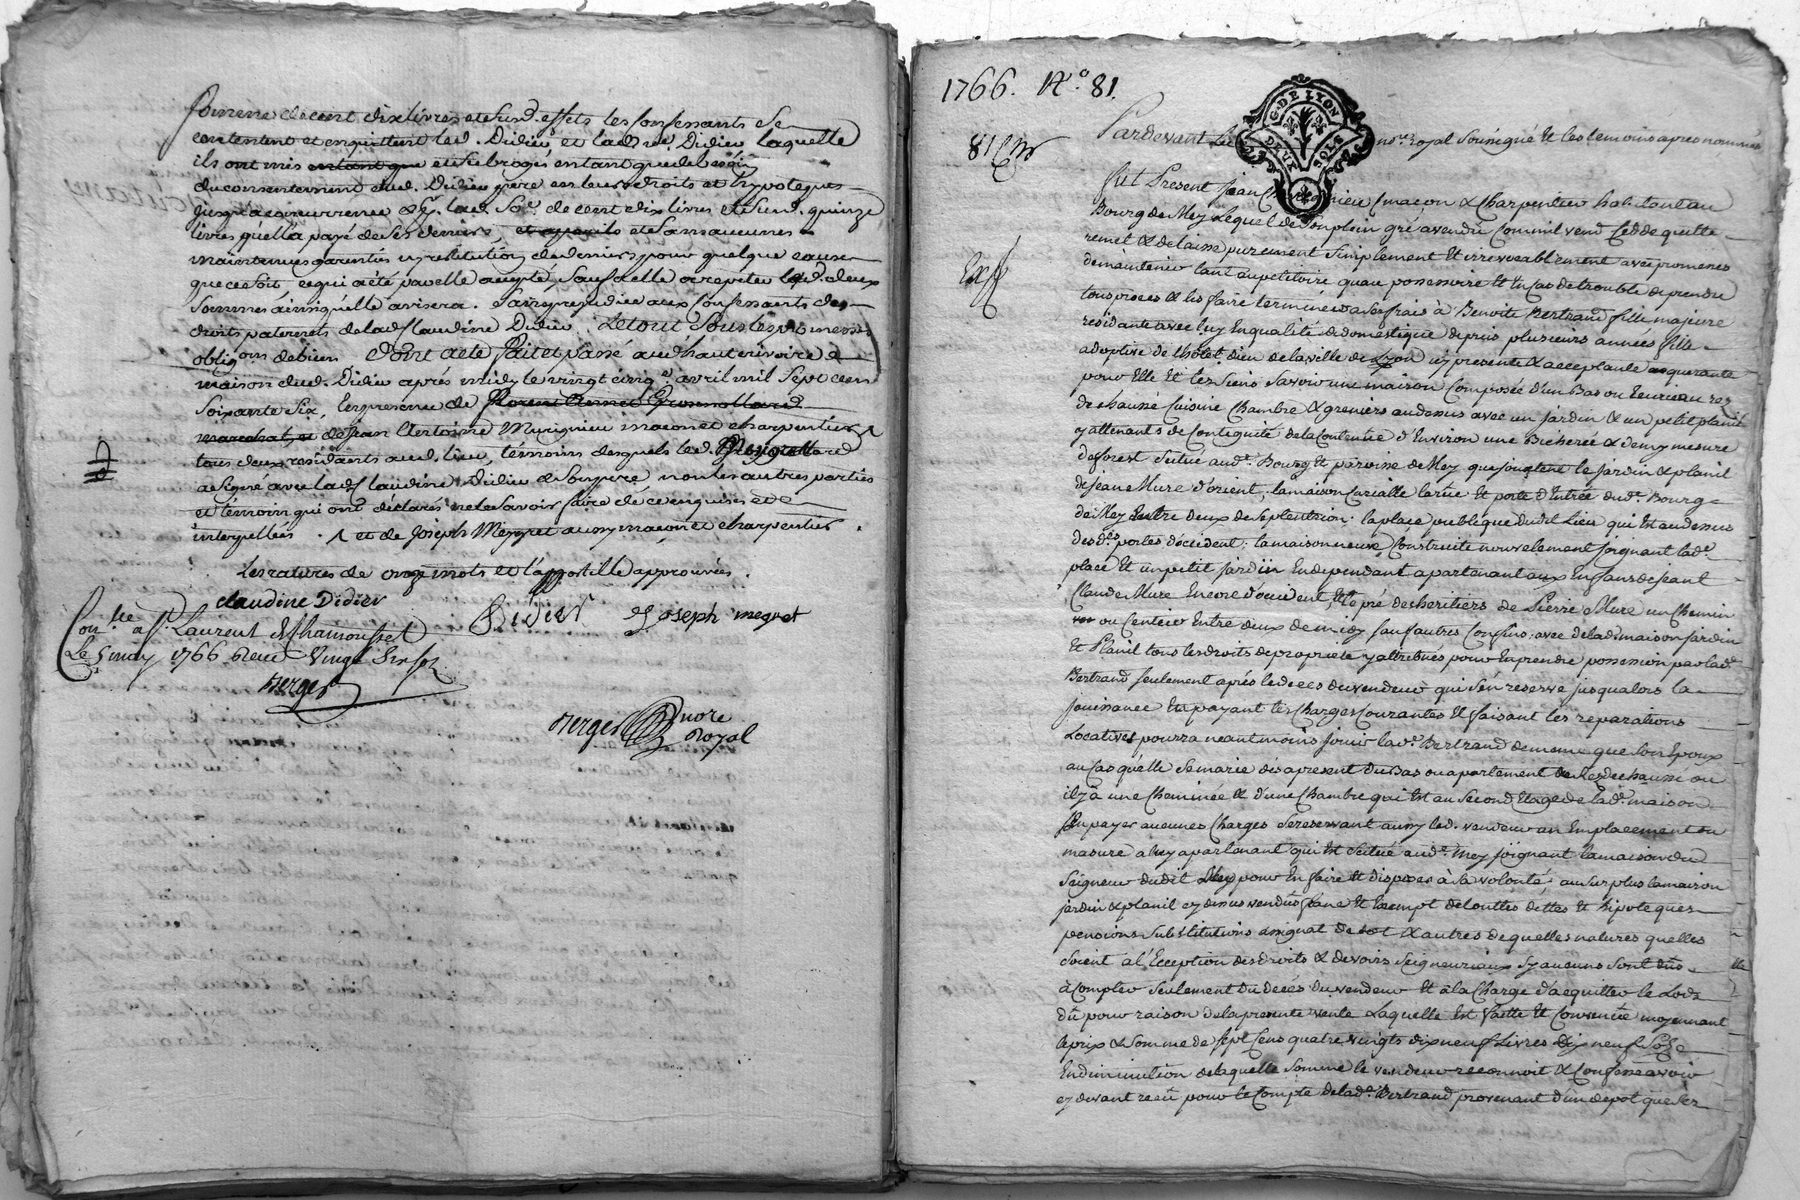 somme de cent dix livres et susd. effets les confessants se
contentent et enquittent led. Didier et lad. Didier laquelle
ils ont mis entant que et subrogés entant que de besoin
du consentement dud. Didier père en leurs droits et hypoteques
jusqu'a concurrence de lad. so.e de cent dix livres et susd. quinze
livres qu'ella payé de ses deniers, et apareils ete sans aucunes
maintenues garenties ny restitution de deniers pour quelque cause
que ce soit ce qui a été par elle accepté, sauf a elle a repeter lesd. deux
sommes ainsi qu'elle avisera. sans prejudice aux Confessants des
droits paternels de lad. Claudine Didier. Le tout sous les promesses
oblig.ons de biens Dont acte Fait et passé aud. hauterivoire
maison dud. Didier après midy le vingt cinq.e avril mil sept cens
soixante six, en presence de
marechal, et de Jean Antoine Murignieu macon et charpentier
tous deux residants aud. lieu, témoins desquels led.
a signé avec lad. Claudine Didier & son pere non les autres parties
et témoin qui ont déclarés ne le savoir faire de ce enquis et
interpellés . et de Joseph Meynet aussy macon et charpentier .
Les ratures de onze mots et l'apostille approuvées .
claudine Didier
Didier
Joseph megnet
Con.lle a S.t Laurent de Chamousset
Le 5 may 1766 Recu Vingt six sols
Berger
Berger nore
Royal
1766. N.o 81.
81
G. DE LYON
DEUX SOLS
Pardevant Le no.re royal soussigné Et les temoins apres nommés
fut Present Jean macon & Charpentier habitant au
Bourg de Mey Lequel de son plein gré a vendu Comm'il vend Cedde quitte
remet & delaisse purement simplement Et irrevocablement avec promesses
Exff
de maintenir tant au petitoire quau possessoire Et En Cas de trouble de prendre
tous proces & les faire terminer a ses frais à Benoite Bertrand fille majeure
residante avec luy En qualité de domestique depuis plusieurs années fille
adoptive de lhôtel dieu de la ville de Lyon icy presente & acceptante acquerante
pour Elle Et les siens Savoir une maison Composée d'un Bas ou Ecurie au rez
de chaussé Cuisine Chambre & greniers au dessus avec un Jardin & un petit planil
y attenants de Contiguité de la Contenue d'Environ une Bicherée & demy mesure
de forest Située aud.t Bourg & paroisse de Mey que joustent le jardin & planil
de Jean Mure d'orient, la maison Curialle la rüe Et porte d'Entrée dud.t Bourg
de Mey Entre deux de septentrion. la place publique dudit Lieu qui Est au dessus
desd.es portes d'occident, la maison neuve Construite nouvelement joignant lad.e
place Et un petit Jardin En dependant apartenant aux Enfans de Jean
Claude Mure Encore d'occident, & le pré des heritiers de Pierre Mure un Chemin
ou Centier Entre deux de midy sauf autres Confins, avec de lad.e maison jardin
Et Planil tous les droits de proprieté y attribués pour En prendre possession par lad.e
Bertrand seulement après le deces du vendeur qui s'en reserve jusqualors la
jouissance En payant les Charges Courantes Et faisant les reparations
Locatives, pourra neantmoins jouir lad.e Bertrand de meme que son Epoux
au Cas qu'elle se marie dès apresent du Bas ou apartement de Rez de chaussé ou
il y a une Cheminée & d'une Chambre qui Est au Second Etage de lad.e maison
sans payer aucunes Charges se reservant aussy led. vendeur un Emplacement ou
masure a luy apartenant qui Est scitué aud.t Mey joignant la maison du
Seigneur dudit Mey pour En faire Et disposer à sa volonté, au surplus la maison
jardin & planil cy dessus vendus franc Et Exempt de touttes dettes Et hipoteques
pensions Substitutions douaires & autres de quelles natures quelles
soient à l'Exception des droits & devoirs Seigneuriaux sy aucuns sont dûs
à Compter seulement du décès du vendeur Et à la Charge d'acquitter le Lods
dû pour raison de la presente vente Laquelle Est faitte Et Convenüe moyennant
le prix & Somme de sept Cens quatre vingts dix neuf Livres Dix neuf Sols
En diminution de laquelle Somme le vendeur reconnoit & Confesse avoir
cy devant recû pour le Compte de lad.e Bertrand provenant d'un depot que les